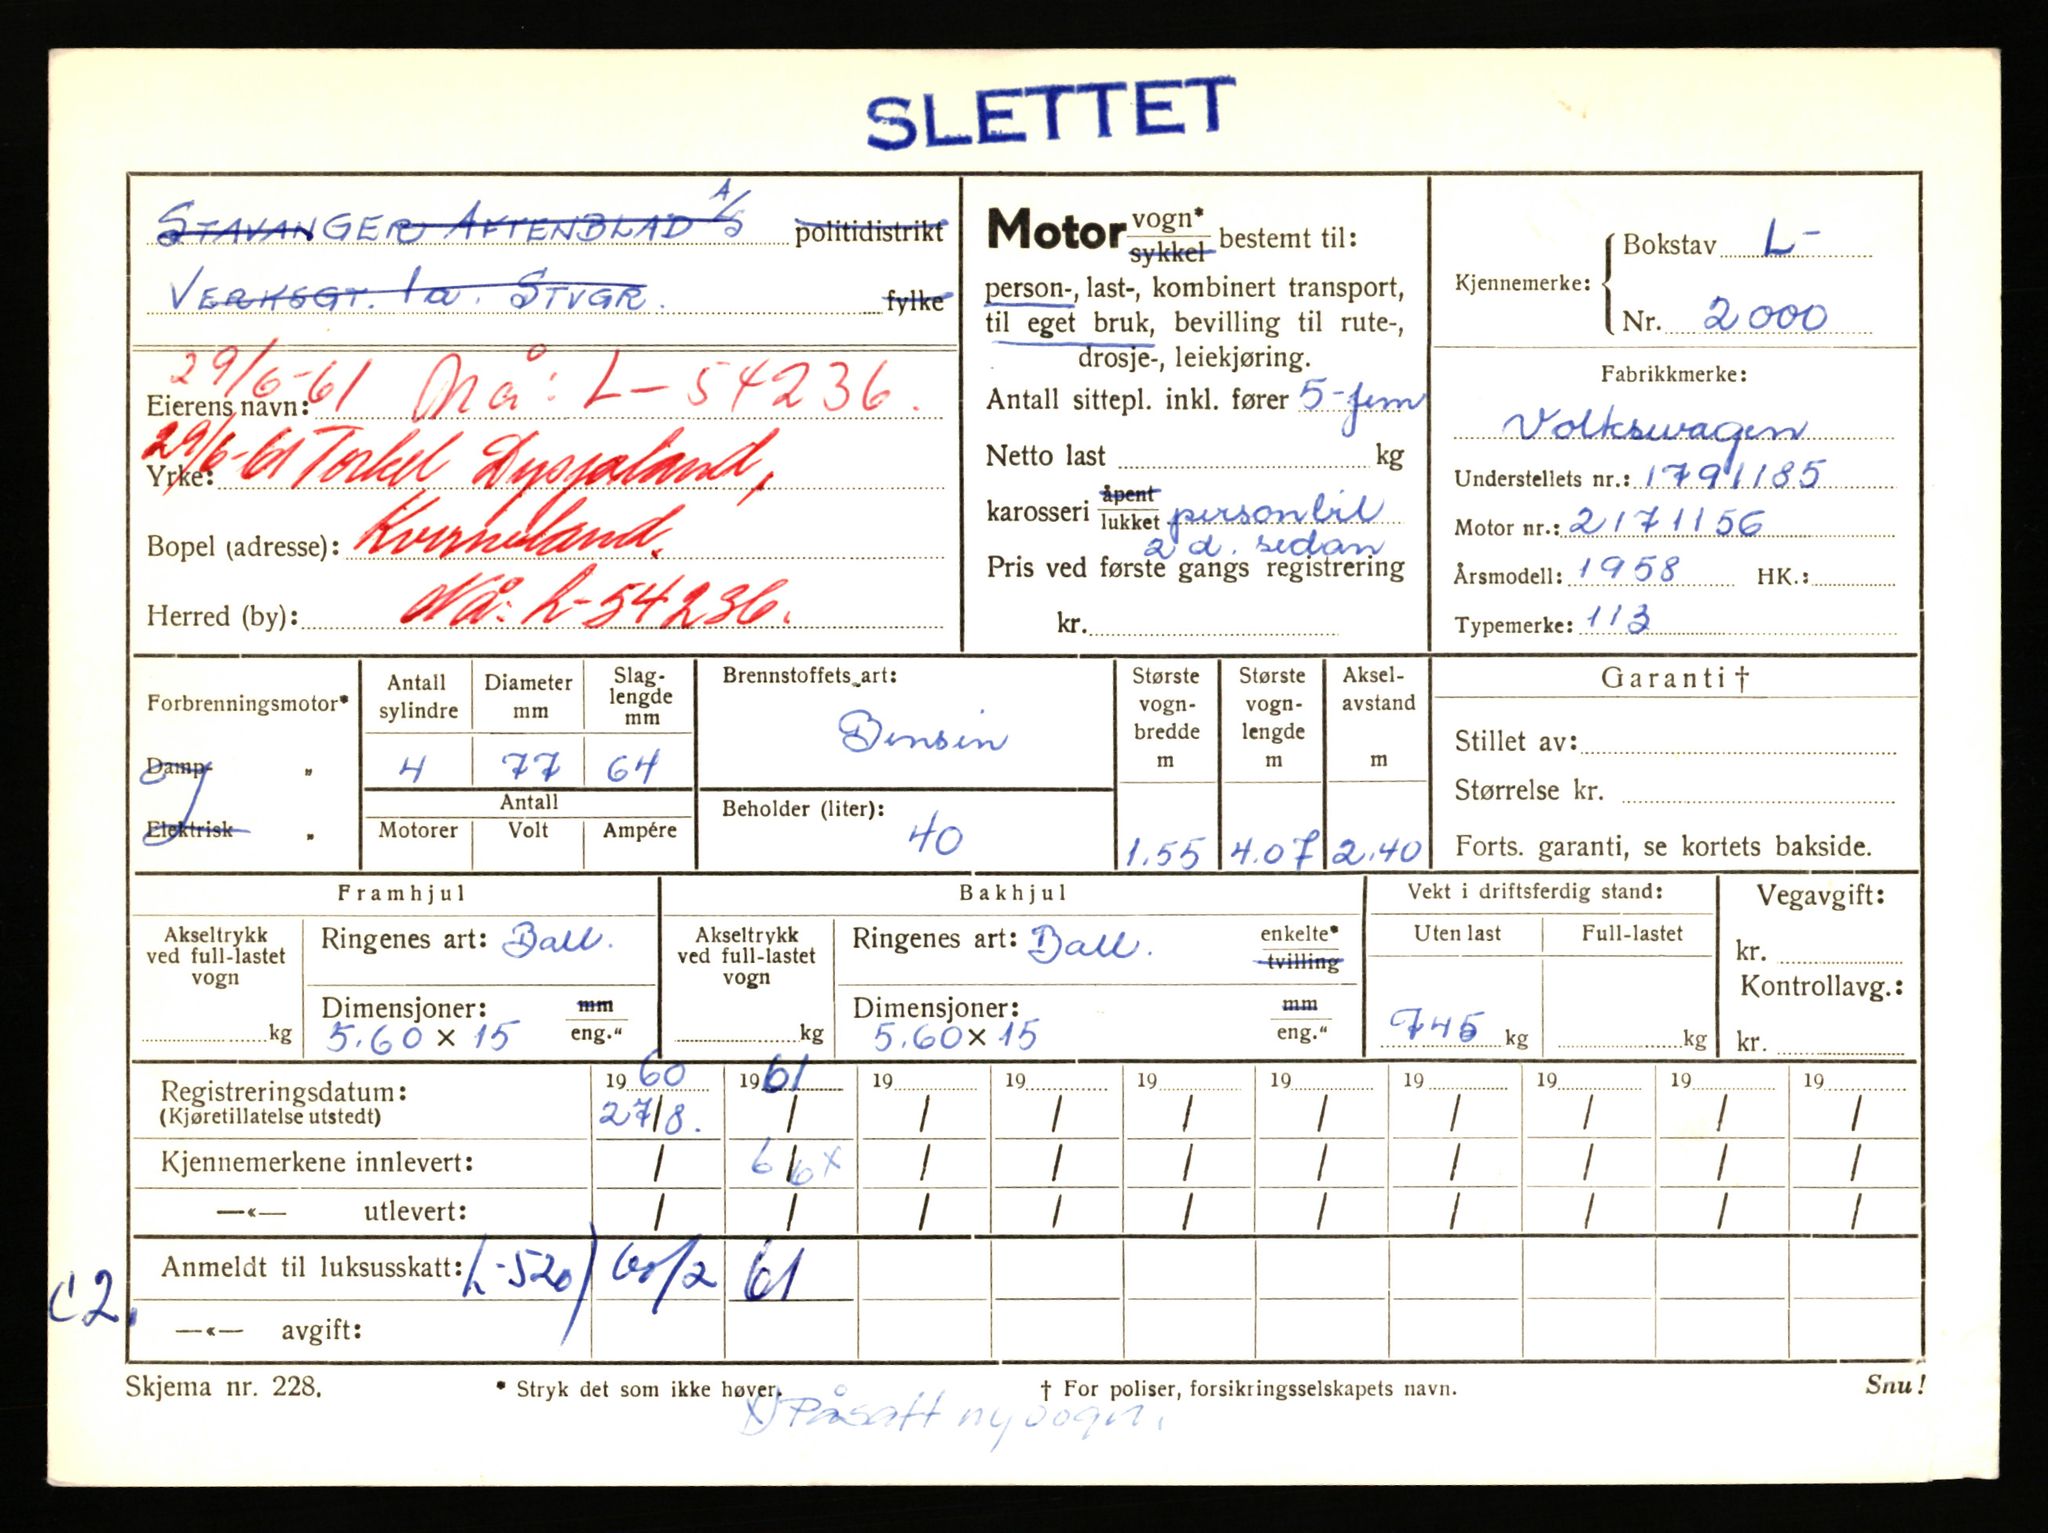 SLETTET
STAVANGER AFTENBLAD A/S politidistrikt
VERKSGT. 1a. STVGR. fylke
29/6-61 Nå: L-54236.
Eierens navn:
29/6-61 Torkel Dysjaland,
Yrke:
Bopel (adresse): Kvernaland.
Herred (by): Nå: L-54236.
Motor vogn* sykkel bestemt til:
person-, last-, kombinert transport,
til eget bruk, bevilling til rute-,
drosje-, leiekjøring.
Antall sittepl. inkl. fører 5-fem
Netto last kg
karosseri åpent lukket personbil
2 d. sedan
Pris ved første gangs registrering
kr.
Kjennemerke: Bokstav L-
Nr. 2000
Fabrikkmerke:
Volkswagen
Understellets nr.: 1791185
Motor nr.: 2171156
Årsmodell: 1958 HK.:
Typemerke: 113
Forbrenningsmotor*
Damp "
Elektrisk "
Antall sylindre Diameter mm Slag-lengde mm
4 77 64
Antall
Motorer Volt Ampére
Brennstoffets art:
Bensin
Beholder (liter):
40
Største vogn-bredde m Største vogn-lengde m Aksel-avstand m
1.55 4.07 2.40
Garanti †
Stillet av:
Størrelse kr.
Forts. garanti, se kortets bakside.
Framhjul
Akseltrykk ved full-lastet vogn kg
Ringenes art: Ball.
Dimensjoner: mm
5.60 x 15 eng."
Bakhjul
Akseltrykk ved full-lastet vogn kg
Ringenes art: Ball. enkelte* tvilling
Dimensjoner: mm
5.60 x 15 eng."
Vekt i driftsferdig stand:
Uten last Full-lastet
745 kg kg
Vegavgift:
kr.
Kontrollavg.:
kr.
Registreringsdatum: 19 60 19 61 19 19 19 19 19 19 19 19
(Kjøretillatelse utstedt) 27/8. / / / / / / / / /
Kjennemerkene innlevert: / 6/6 x / / / / / / / /
—«— utlevert: / / / / / / / / / /
Anmeldt til luksusskatt: L-520) 60/2 61
C2.
—«— avgift:
Skjema nr. 228. * Stryk det som ikke høver. † For poliser, forsikringsselskapets navn. Snu!
x) Påsatt ny vogn.